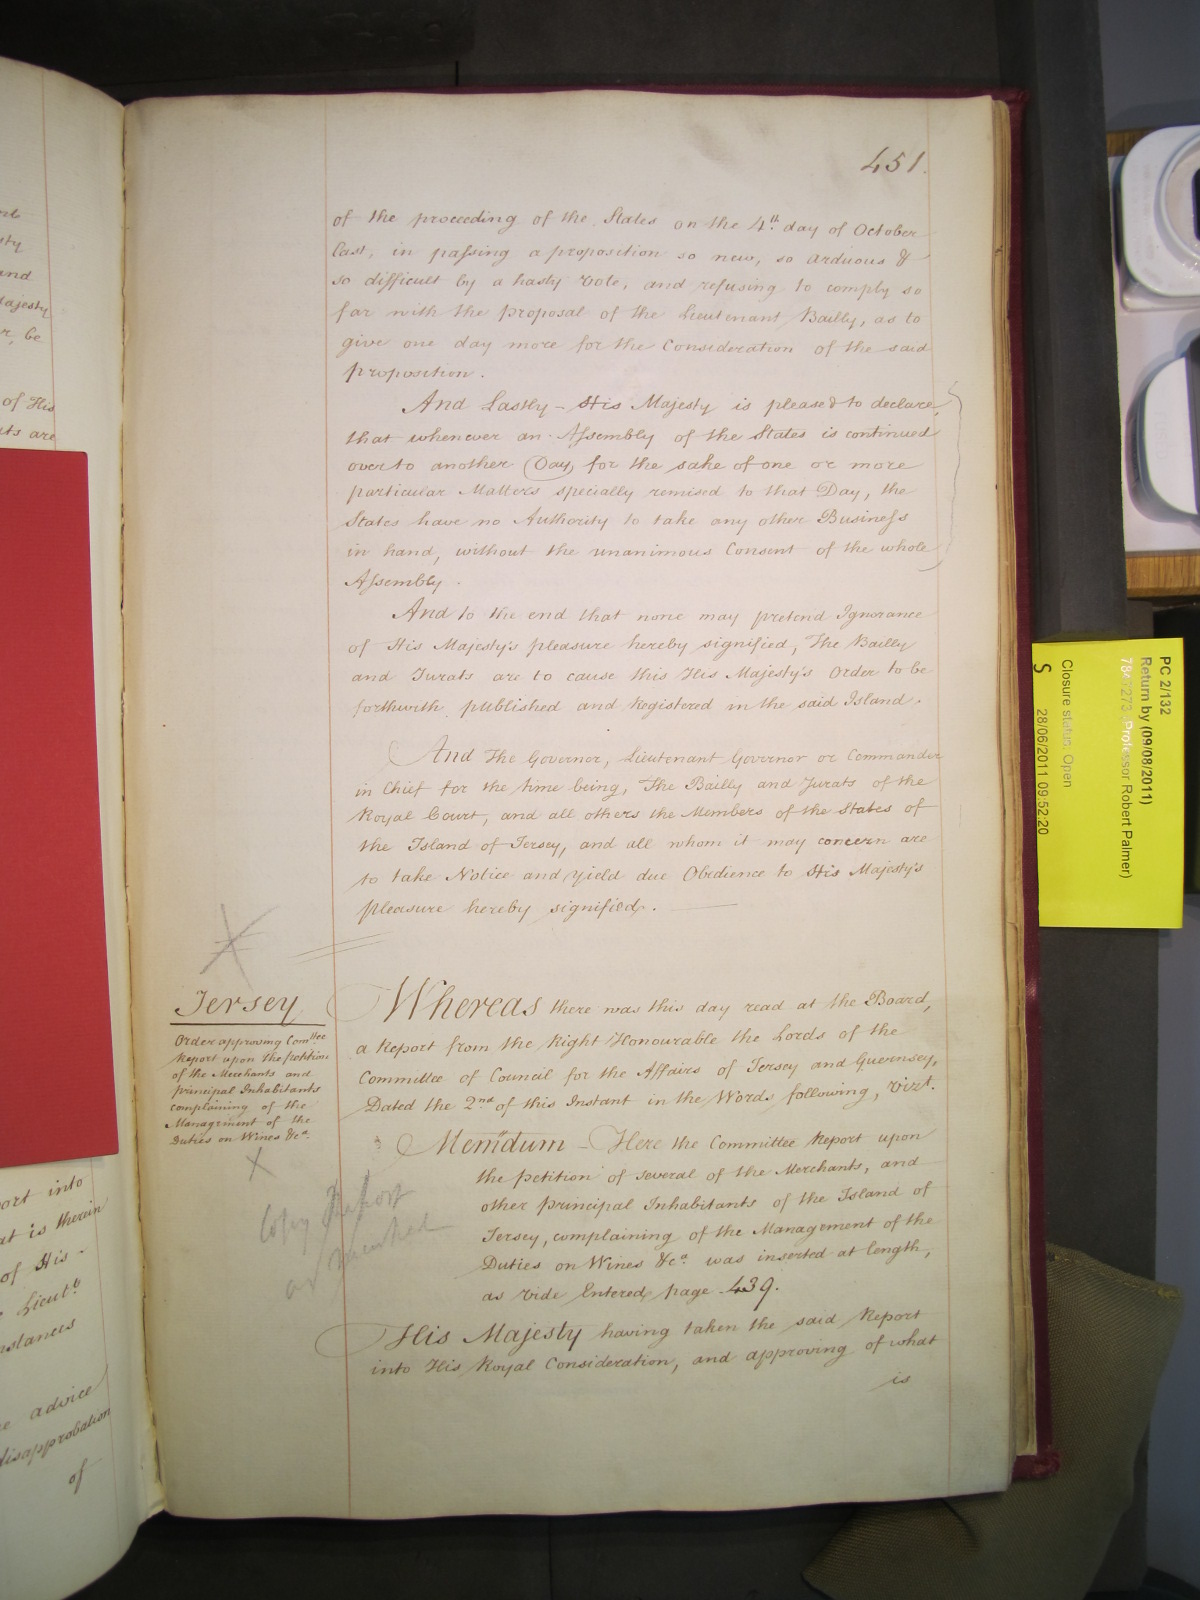 451.
of the proceeding of the States on the 4th. day of October
last, in passing a proposition so new, so arduous &
so difficult by a hasty Vote, and refusing to comply so
far with the proposal of the Lieutenant Bailly, as to
give one day more for the Consideration of the said
proposition.
And Lastly - His Majesty is pleased to declare,
that whenever an Assembly of the States is continued
over to another Day, for the sake of one or more
particular Matters specially remised to that Day, the
States have no Authority to take any other Business
in hand, without the unanimous Consent of the whole
Assembly.
And to the end that none may pretend Ignorance
of His Majesty's pleasure hereby signified, The Bailly
and Jurats are to cause this His Majesty's Order to be
forthwith published and Registered in the said Island.
And The Governor, Lieutenant Governor or Commander
in Chief for the time being, The Bailly and Jurats of the
Royal Court, and all others the Members of the States of
the Island of Jersey, and all whom it may concern are
to take Notice and yield due Obedience to His Majesty's
pleasure hereby signified.
Jersey
Order approving Comttee
Report upon the petition
of the Merchants and
principal Inhabitants
complaining of the
Management of the
Duties on Wines &ca.
Whereas there was this day read at the Board,
a Report from the Right Honourable the Lords of the
Committee of Council for the Affairs of Jersey and Guernsey,
Dated the 2nd of this Instant in the Words following, Vizt.
Memdum - Here the Committee Report upon
the petition of several of the Merchants, and
other principal Inhabitants of the Island of
Jersey, complaining of the Management of the
Duties on Wines &ca was inserted at length,
as vide Entered page 439.
Copy Report
as marked
His Majesty having taken the said Report
into His Royal Consideration, and approving of what
is
sty
and
Majesty
r, be
of His
ts are
ort into
at is therein
of His -
Lieutt.
nstances
e advice
disapprobation
of
PC 2/132
Return by (09/08/2011)
Professor Robert Palmer)
Closure status: Open
S 28/06/2011 09:52:20